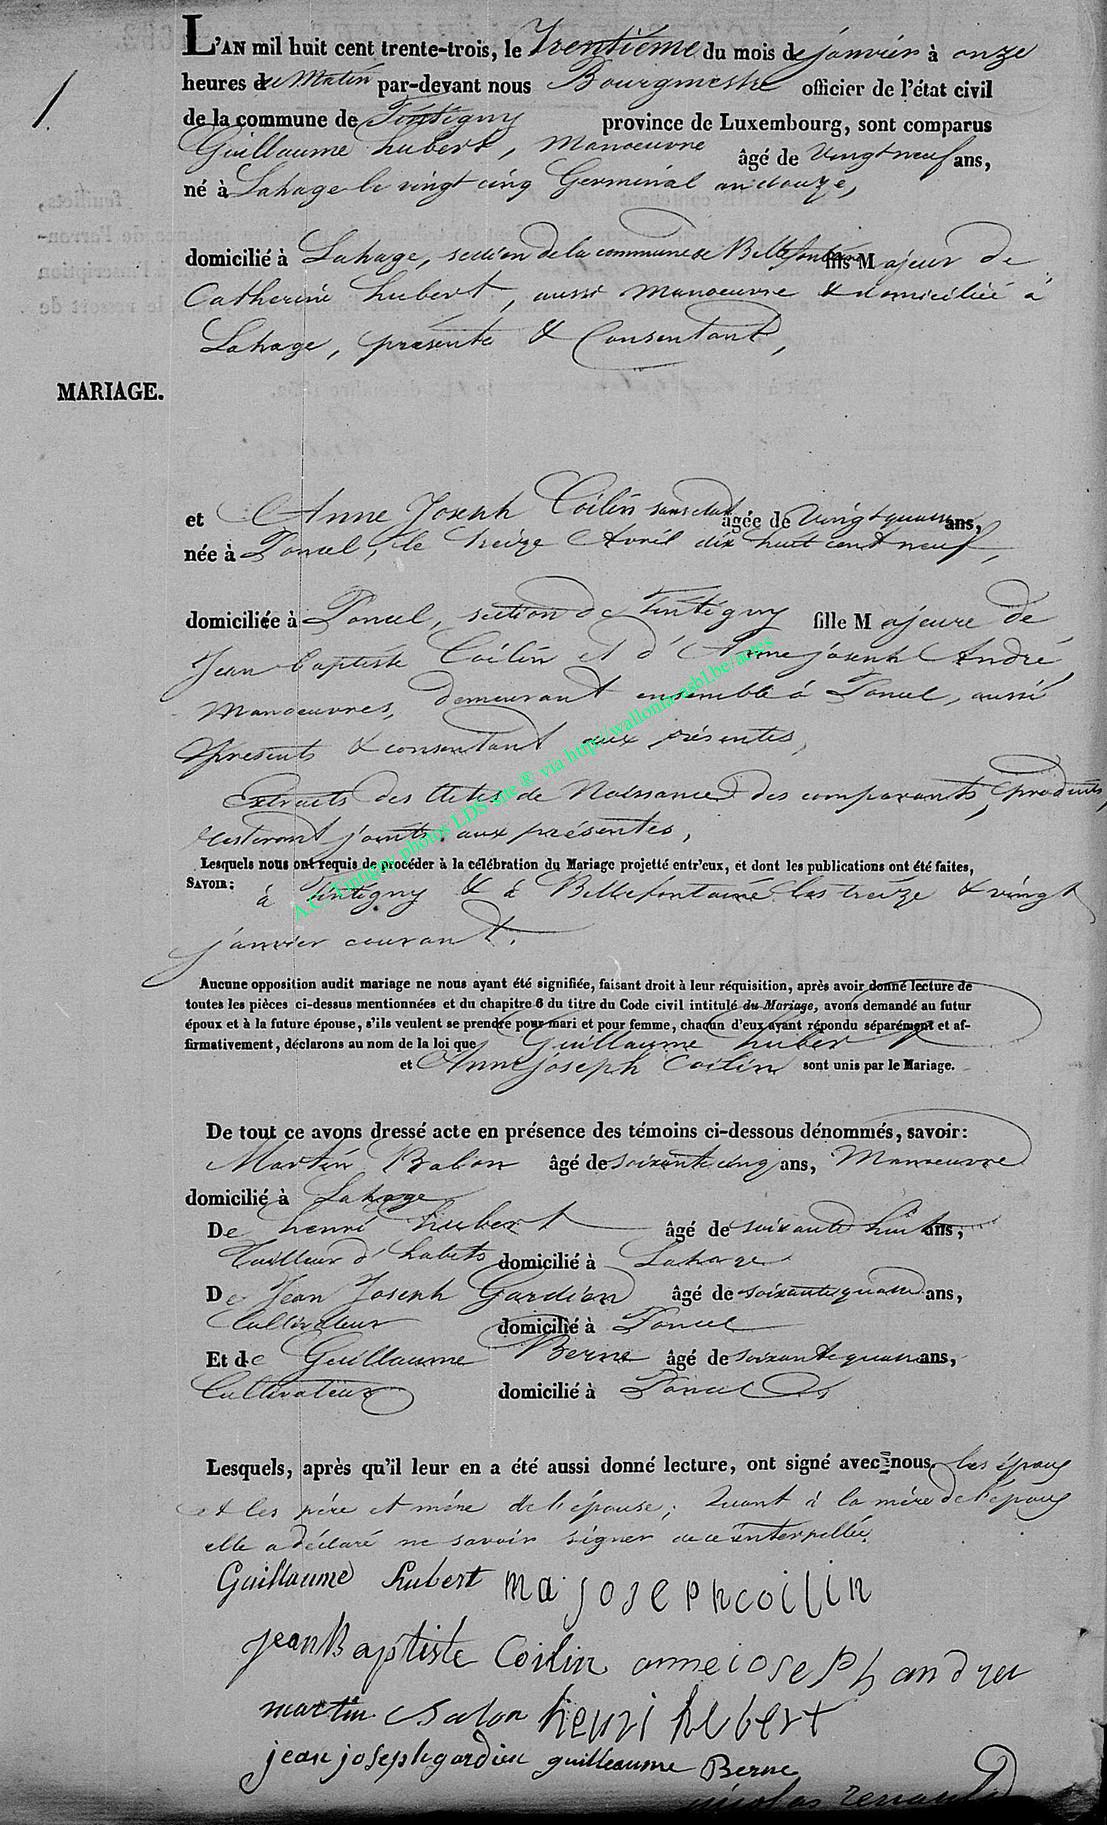 L'AN mil huit cent trente-trois, le Trentième du mois de janvier à onze
heures du Matin par-devant nous Bourgmestre officier de l'état civil
de la commune de Tintigny province de Luxembourg, sont comparus
Guillaume hubert, Manoeuvre âgé de Vingt neuf ans,
né à Lahage le vingt cinq Germinal an douze,
domicilié à Lahage, section de la commune de Bellefontaine fils Majeur de
Catherine hubert, aussi manoeuvre & domiciliée à
Lahage, présente & Consentant,
MARIAGE.
et Anne Joseph Coilin sans état âgée de Vingt quatre ans,
née à Poncel, le Treize Avril dix huit cent neuf,
domiciliée à Poncel, section de Tintigny fille Majeure de
Jean Baptiste Coilin et d'Anne joseph André
Manoeuvres, demeurant ensemble à Poncel, aussi
présents & consentant aux présentes,
Extraits des Actes de Naissance des comparants, produits,
resteront joints aux présentes,
Lesquels nous ont requis de procéder à la célébration du Mariage projetté entr'eux, et dont les publications ont été faites,
SAVOIR:
à Tintigny & à Bellefontaine les treize & vingt
janvier courant.
Aucune opposition audit mariage ne nous ayant été signifiée, faisant droit à leur réquisition, après avoir donné lecture de
toutes les pièces ci-dessus mentionnées et du chapitre 6 du titre du Code civil intitulé du Mariage, avons demandé au futur
époux et à la future épouse, s'ils veulent se prendre pour mari et pour femme, chacun d'eux ayant répondu séparément et af-
firmativement, déclarons au nom de la loi que Guillaume hubert
et Anne joseph Coilin sont unis par le Mariage.
De tout ce avons dressé acte en présence des témoins ci-dessous dénommés, savoir:
Martin Balon âgé de soixante cinq ans, Manoeuvre
domicilié à Lahage
De henri hubert âgé de soixante huit ans,
Tailleur d'habits domicilié à Lahage
De Jean Joseph Gardien âgé de soixante quatre ans,
Cultivateur domicilié à Poncel
Et de Guillaume Berne âgé de soixante quatre ans,
Cultivateur domicilié à Poncel
Lesquels, après qu'il leur en a été aussi donné lecture, ont signé avec nous, les époux
et les père et mère de l'épouse; Quant à la mère de l'époux
elle a déclaré ne savoir signer de ce interpellée.
Guillaume hubert ma joseph coilin
jean Baptiste Coilin anne ioseph andreu
martin Balon henri hubert
jean joseph gardien guilleaume Berne
nicolas renauld
A.C. Tintigny photos LDS site ® via http://wallonia-asbl.be/actes